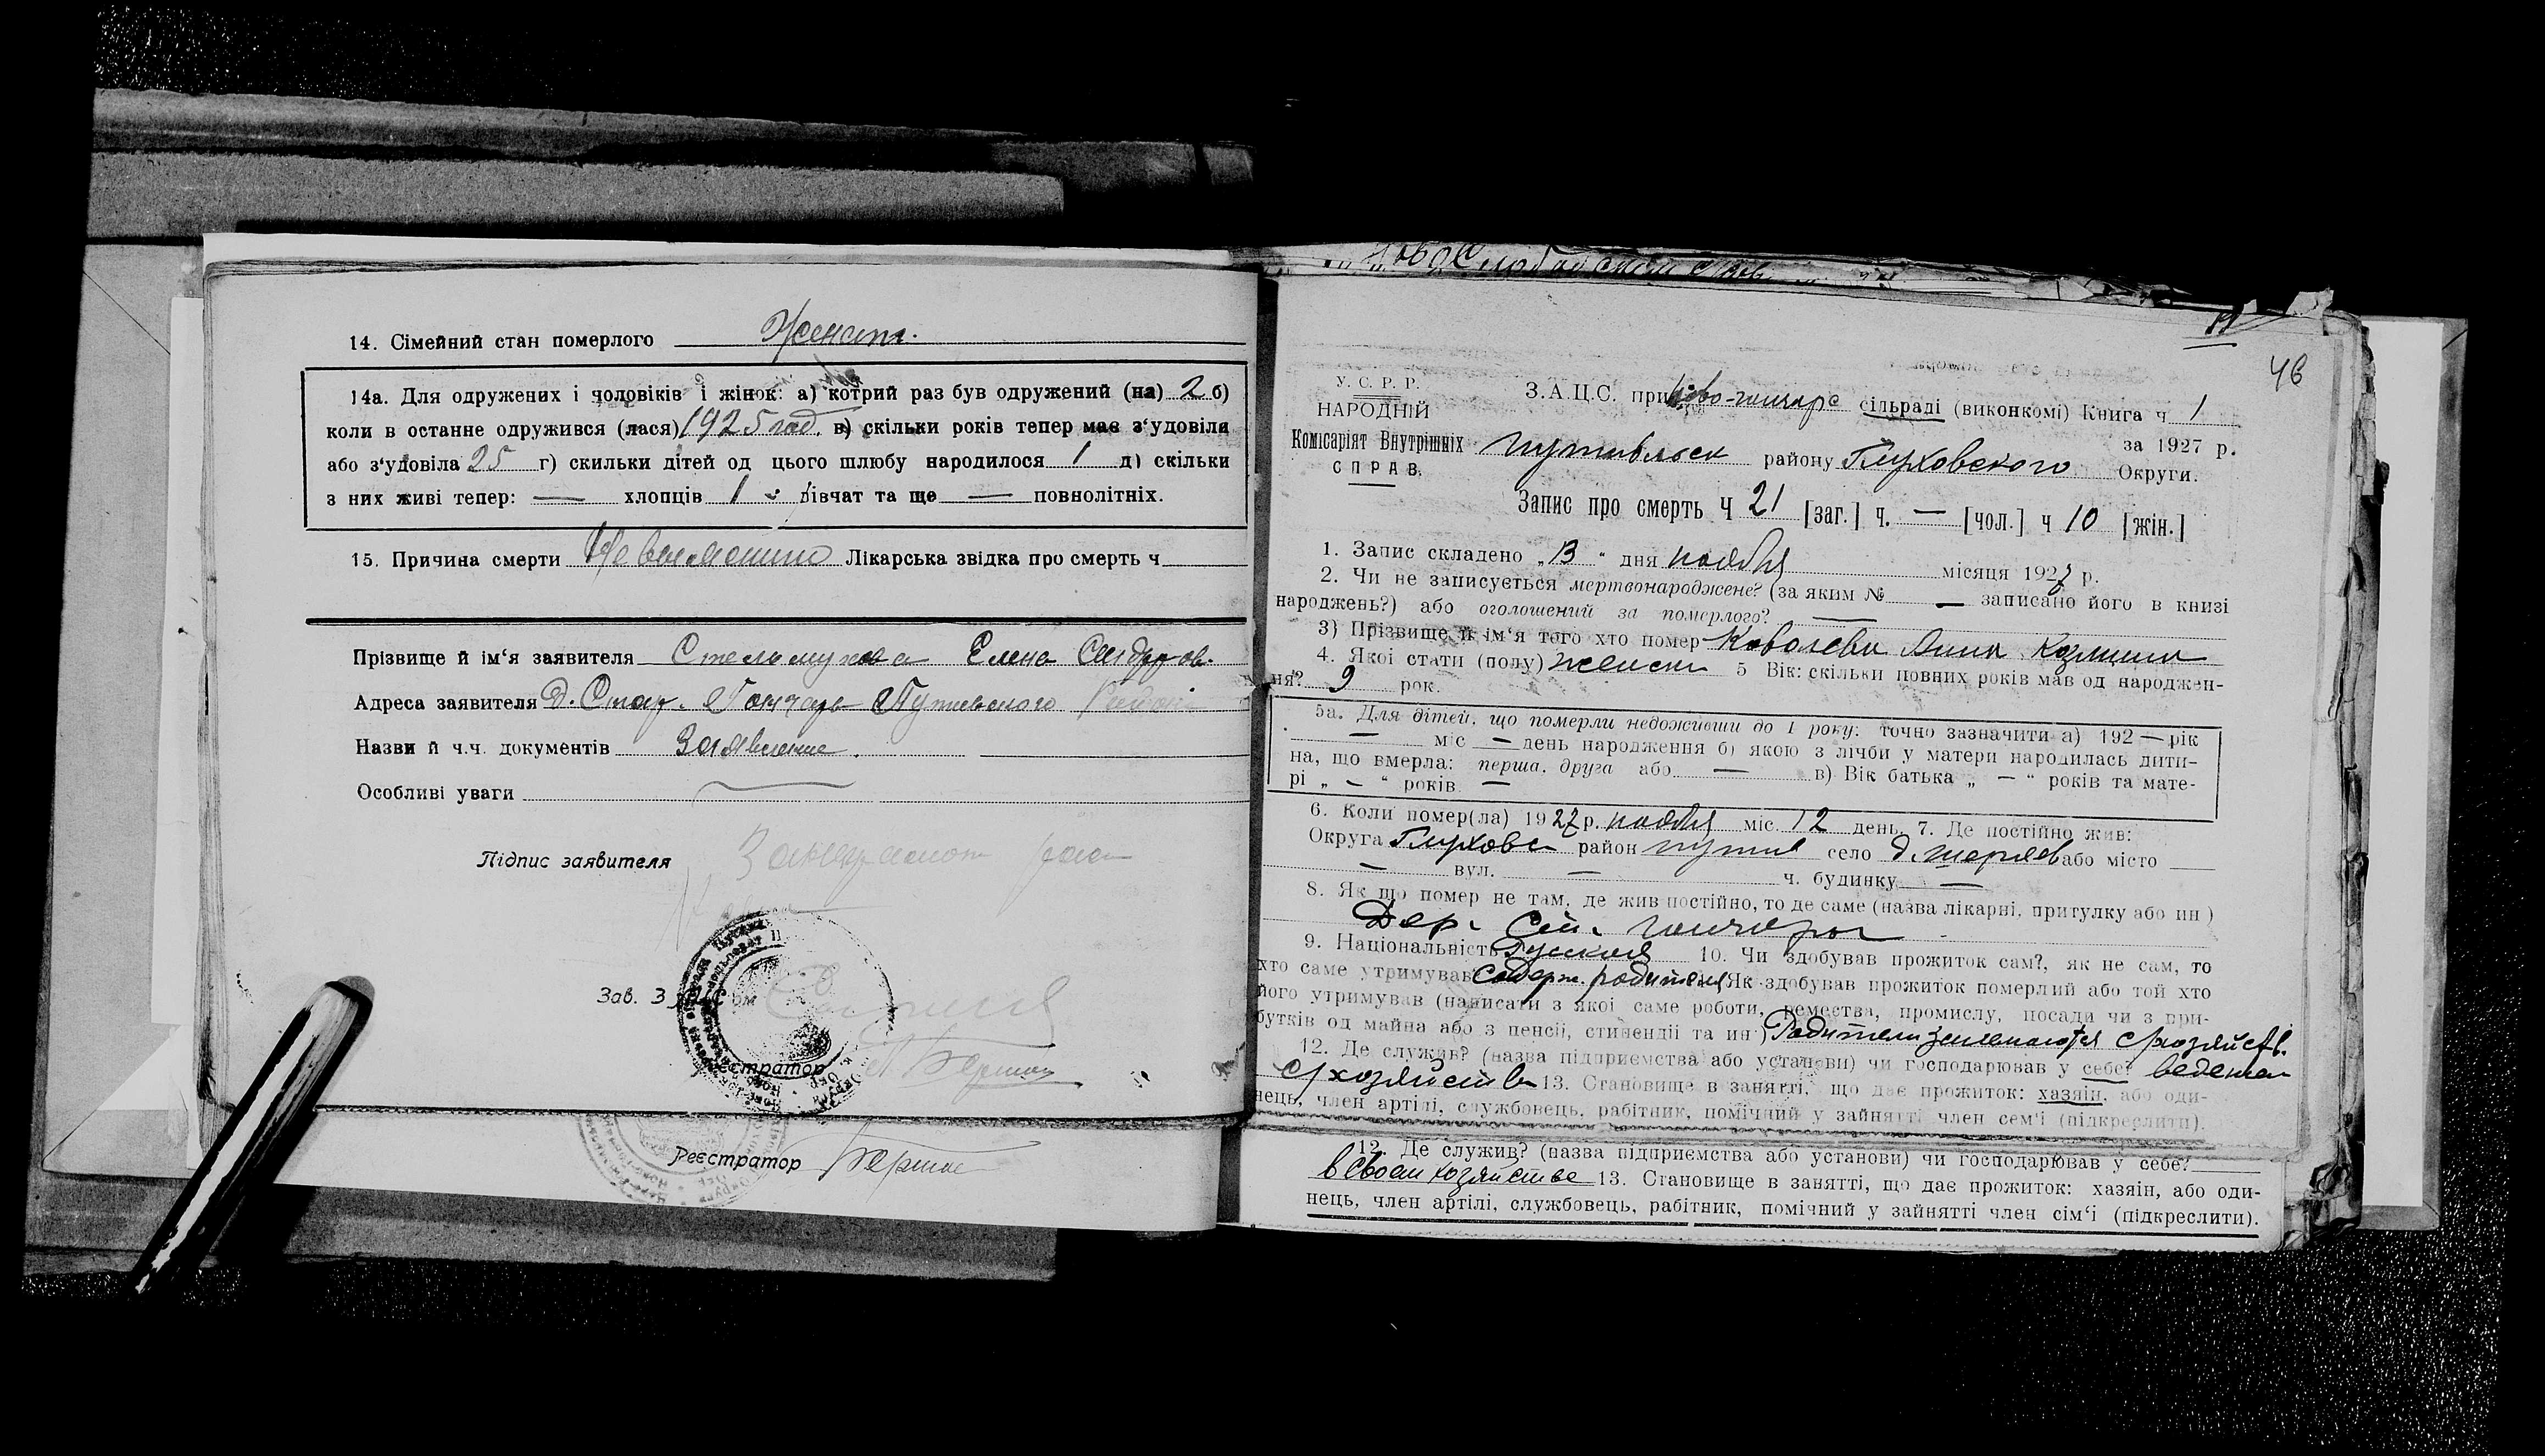 14. Сімейний стан померлого Женат.
14а. Для одружених і чоловіків і жінок: а) котрий раз був одружений (на) 2 б)
коли в останне одружився (лася) 1925 год. в) скільки років тепер має з'удовіля
або з'удовіла 25 г) скильки дітей од цього шлюбу народилося 1 д) скільки
з них живі тепер: — хлопців 1 дівчат та ще — повнолітніх.
15. Причина смерти Лікарська звідка про смерть ч
Прізвище й ім'я заявителя Елена
Адреса заявителя Д. Стар. Гончары Путивльского
Назви й ч.ч. документів Заявление.
Особливі уваги
Підпис заявителя
Зав. ЗАГС'ом
Реєстратор
Реєстратор
46
У. С. Р. Р.
НАРОДНІЙ
Комісаріят Внутрішніх
СПРАВ.
З.А.Ц.С. при Ново-гончарс сільраді (виконкомі) Книга ч 1
за 1927 р.
путивльск району Глуховского Округи.
Запис про смерть ч 21 [заг.] ч. — [чол.] ч 10 [жін.]
1. Запис складено „13" дня ноября місяця 1927 р.
2. Чи не записується мертвонароджене? (за яким № — записано його в книзі
народжень?) або оголошений за померлого? —
3) Прізвище й ім'я того хто помер Ковалева Анна
4. Якої стати (полу) женск 5 Вік: скільки повних років мав од народжен-
ня? 9 рок.
5а. Для дітей, що померли недоживши до 1 року: точно зазначити а) 192 — рік
— міс — день народження б) якою з лічби у матери народилась дити-
на, що вмерла: перша, друга або — в) Вік батька „ — " років та мате-
рі „ — " років. —
6. Коли помер(ла) 1927 р. ноября міс. 12 день. 7. Де постійно жив:
Округа Глуховс район путив село або місто —
— вул. — ч. будинку —
8. Як що помер не там, де жив постійно, то де саме (назва лікарні, притулку або ин)
Дер. гончары
9. Національність Руская 10. Чи здобував прожиток сам?, як не сам, то
хто саме утримував содерж. родителя Як здобував прожиток померлий або той хто
його утримував (написати з якої саме роботи, ремества, промислу, посади чи з при-
бутків од майна або з пенсії, стипендії та ин) Родители занимаются с/хозяйств.
12. Де служив? (назва підприємства або установи) чи господарював у себе?
с/хозяйства 13. Становище в занятті, що дає прожиток: хазяїн, або оди-
нець, член артілі, службовець, рабітник, помічний у зайнятті член сем'ї (підкреслити).
12. Де служив? (назва підприємства або установи) чи господарював у себе?
в своем хозяйстве 13. Становище в занятті, що дає прожиток: хазяїн, або оди-
нець, член артілі, службовець, рабітник, помічний у зайнятті член сім'ї (підкреслити).